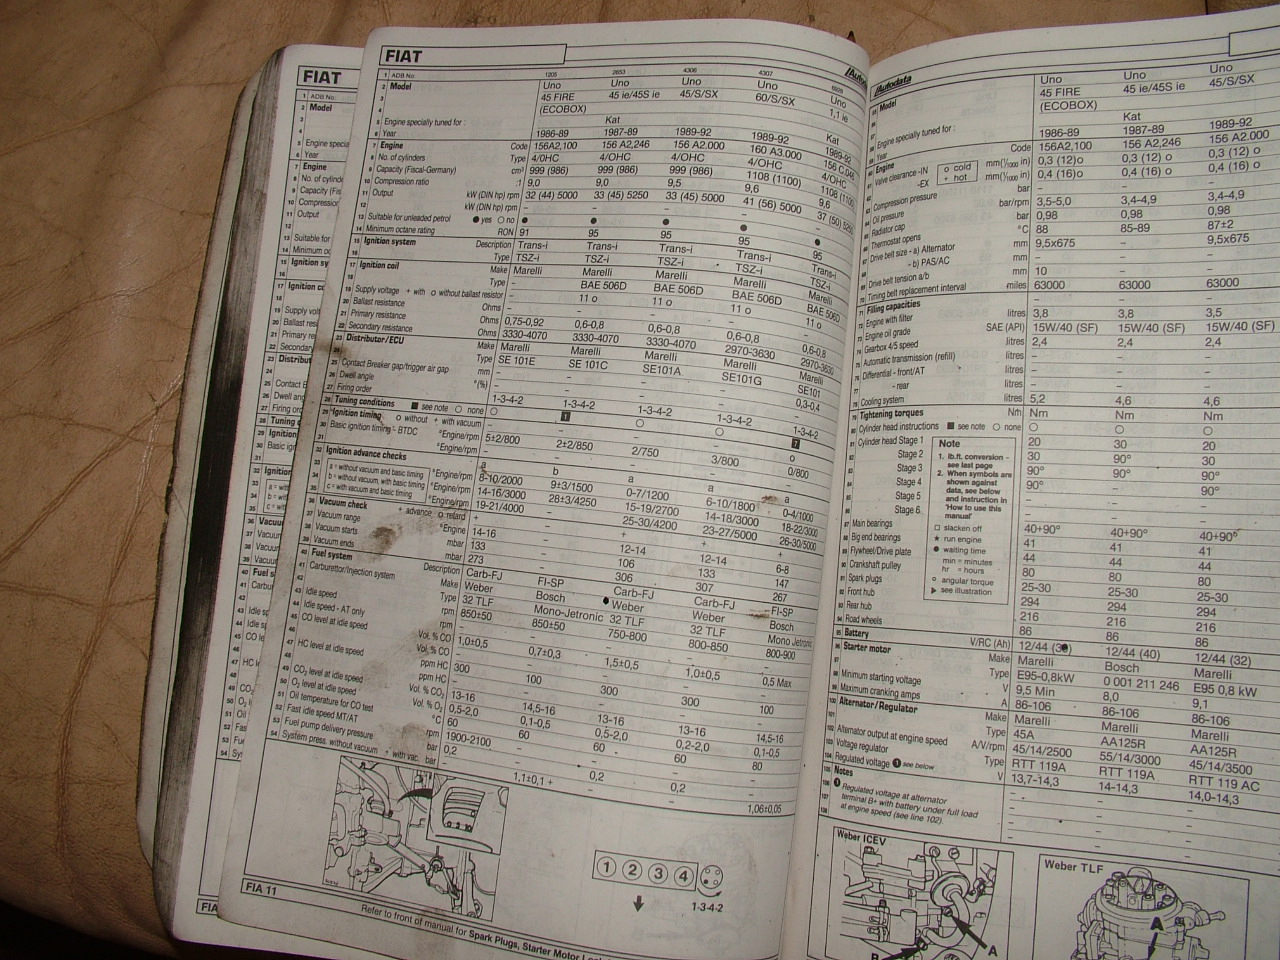 FIAT
FIAT
1 ADB No: 1205 2653 4306 4307 6009
2 Model Uno Uno Uno Uno Uno
3 45 FIRE 45 ie/45S ie 45/S/SX 60/S/SX 1,1 ie
4 (ECOBOX)
5 Engine specially tuned for : Kat Kat
6 Year 1986-89 1987-89 1989-92 1989-92 1989-92
7 Engine Code 156A2,100 156 A2,246 156 A2.000 160 A3.000
8 No. of cylinders Type 4/OHC 4/OHC 4/OHC 4/OHC 4/OHC
9 Capacity (Fiscal-Germany) cm³ 999 (986) 999 (986) 999 (986) 1108 (1100) 1108 (1100)
10 Compression ratio :1 9,0 9,0 9,5 9,6 9,6
11 Output kW (DIN hp) rpm 32 (44) 5000 33 (45) 5250 33 (45) 5000 41 (56) 5000 37 (50) 5250
12 kW (DIN hp) rpm – – – – –
13 Suitable for unleaded petrol ● yes ○ no ● ● ● ● ●
14 Minimum octane rating RON 91 95 95 95 95
15 Ignition system Description Trans-i Trans-i Trans-i Trans-i Trans-i
16 Type TSZ-i TSZ-i TSZ-i TSZ-i TSZ-i
17 Ignition coil Make Marelli Marelli Marelli Marelli Marelli
18 Type – BAE 506D BAE 506D BAE 506D BAE 506D
19 Supply voltage + with o without ballast resistor – 11 o 11 o 11 o 11 o
20 Ballast resistance Ohms – – – – –
21 Primary resistance Ohms 0,75-0,92 0,6-0,8 0,6-0,8 0,6-0,8 0,6-0,8
22 Secondary resistance Ohms 3330-4070 3330-4070 3330-4070 2970-3630 2970-3630
23 Distributor/ECU Make Marelli Marelli Marelli Marelli Marelli
24 Type SE 101E SE 101C SE101A SE101G SE101
25 Contact Breaker gap/trigger air gap mm – – – – 0,3-0,4
26 Dwell angle °(%) – – – – –
27 Firing order 1-3-4-2 1-3-4-2 1-3-4-2 1-3-4-2 1-3-4-2
28 Tuning conditions ■ see note ○ none ○ 1 ○ ○ 7
29 Ignition timing o without + with vacuum
30 Basic ignition timing - BTDC °Engine/rpm 5±2/800 2±2/850 2/750 3/800 0/800
31 °Engine/rpm – – – – –
32 Ignition advance checks a b a a a
33 a = without vacuum and basic timing °Engine/rpm 8-10/2000 9±3/1500 0-7/1200 6-10/1800 0-4/1000
34 b = without vacuum, with basic timing °Engine/rpm 14-16/3000 28±3/4250 15-19/2700 14-18/3000 18-22/3000
35 c = with vacuum and basic timing °Engine/rpm 19-21/4000 25-30/4200 23-27/5000 26-30/5000
36 Vacuum check + advance o retard
37 Vacuum range °Engine 14-16 12-14 12-14 6-8
38 Vacuum starts mbar 133 106 133 147
39 Vacuum ends mbar 273 306 307 267
40 Fuel system Description Carb-FJ FI-SP Carb-FJ Carb-FJ FI-SP
41 Carburettor/Injection system Make Weber Bosch Weber Weber Bosch
42 Type 32 TLF Mono-Jetronic 32 TLF 32 TLF Mono Jetronic
43 Idle speed rpm 850±50 850±50 750-800 800-850 800-900
44 Idle speed - AT only rpm – – – – –
45 CO level at idle speed Vol. % CO 1,0±0,5 0,7±0,3 1,5±0,5 1,0±0,5 0,5 Max
46 Vol. % CO
47 HC level at idle speed ppm HC 300 100 300 300 100
48 ppm HC
49 CO₂ level at idle speed Vol. % CO₂ 13-16 14,5-16 13-16 13-16 14,5-16
50 O₂ level at idle speed Vol. % O₂ 0,5-2,0 0,1-0,5 0,5-2,0 0,2-2,0 0,1-0,5
51 Oil temperature for CO test °C 60 60 60 60 80
52 Fast idle speed MT/AT rpm 1900-2100
53 Fuel pump delivery pressure bar 0,2 0,2 0,2
54 System press. without vacuum + with vac. bar 1,1±0,1 + 1,06±0,05
1 2 3 4
1-3-4-2
FIA 11
Refer to front of manual for Spark Plugs, Starter Motor
Autodata
Autodata
Model Uno Uno Uno
45 FIRE 45 ie/45S ie 45/S/SX
(ECOBOX)
Engine specially tuned for : Kat
Year 1986-89 1987-89 1989-92
Engine Code 156A2,100 156 A2,246 156 A2.000
Valve clearance -IN o cold mm(¹/₁₀₀₀ in) 0,3 (12) o 0,3 (12) o 0,3 (12) o
-EX + hot mm(¹/₁₀₀₀ in) 0,4 (16) o 0,4 (16) o 0,4 (16) o
Compression pressure bar – – –
Oil pressure bar/rpm 3,5-5,0 3,4-4,9 3,4-4,9
Radiator cap bar 0,98 0,98 0,98
Thermostat opens °C 88 85-89 87±2
Drive belt size - a) Alternator mm 9,5x675 – 9,5x675
- b) PAS/AC
Drive belt tension a/b mm 10 – –
Timing belt replacement interval miles 63000 63000 63000
Filling capacities
Engine with filter litres 3,8 3,8 3,5
Engine oil grade SAE (API) 15W/40 (SF) 15W/40 (SF) 15W/40 (SF)
Gearbox 4/5 speed litres 2,4 2,4 2,4
Automatic transmission (refill) litres – – –
Differential - front/AT litres – – –
- rear litres – – –
Cooling system litres 5,2 4,6 4,6
Tightening torques Nm Nm Nm Nm
Cylinder head instructions ■ see note ○ none ○ ○ ○
Cylinder head Stage 1 20 30 20
Stage 2 30 90° 30
Stage 3 90° 90° 90°
Stage 4 90° – 90°
Stage 5 – – –
Stage 6 – – –
Note
1. lb.ft. conversion -
see last page
2. When symbols are
shown against
data, see below
and instruction in
'How to use this
manual'
□ slacken off
★ run engine
● waiting time
min = minutes
hr = hours
o angular torque
▶ see illustration
Main bearings 40+90° 40+90° 40+90°
Big end bearings 41 41 41
Flywheel/Drive plate 44 44 44
Crankshaft pulley 80 80 80
Spark plugs 25-30 25-30 25-30
Front hub 294 294 294
Rear hub 216 216 216
Road wheels 86 86 86
Battery V/RC (Ah) 12/44 12/44 (40) 12/44 (32)
Starter motor Make Marelli Bosch Marelli
Type E95-0,8kW 0 001 211 246 E95 0,8 kW
Minimum starting voltage V 9,5 Min 8,0 9,1
Maximum cranking amps A 86-106 86-106 86-106
Alternator/Regulator Make Marelli Marelli Marelli
Type 45A AA125R AA125R
Alternator output at engine speed A/V/rpm 45/14/2500 55/14/3000 45/14/3500
Voltage regulator Type RTT 119A RTT 119A RTT 119 AC
Regulated voltage 1 see below V 13,7-14,3 14-14,3 14,0-14,3
Notes
1 Regulated voltage at alternator
terminal B+ with battery under full load
at engine speed (see line 102).
Weber ICEV
A
B
Weber TLF
A